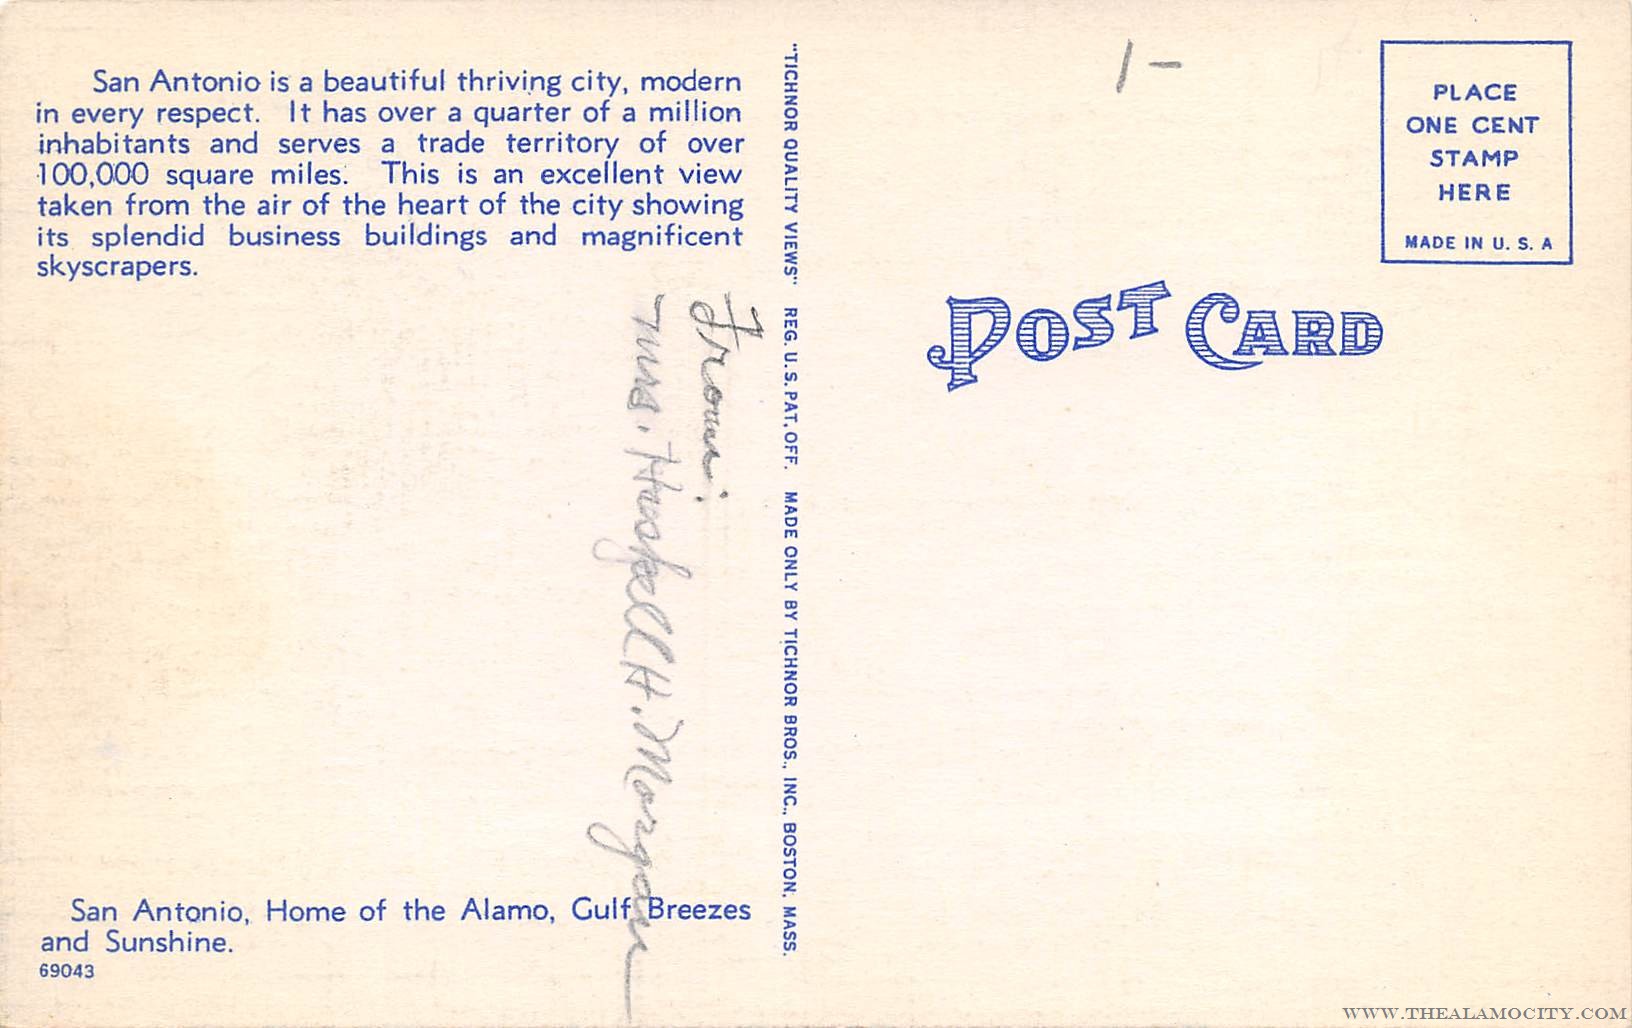 San Antonio is a beautiful thriving city, modern
in every respect. It has over a quarter of a million
inhabitants and serves a trade territory of over
100,000 square miles. This is an excellent view
taken from the air of the heart of the city showing
its splendid business buildings and magnificent
skyscrapers.
From:
Mrs. H. Morgan
San Antonio, Home of the Alamo, Gulf Breezes
and Sunshine.
69043
"TICHNOR QUALITY VIEWS" REG. U.S. PAT. OFF. MADE ONLY BY TICHNOR BROS., INC., BOSTON, MASS.
1-
PLACE
ONE CENT
STAMP
HERE
MADE IN U. S. A
POST CARD
WWW.THEALAMOCITY.COM